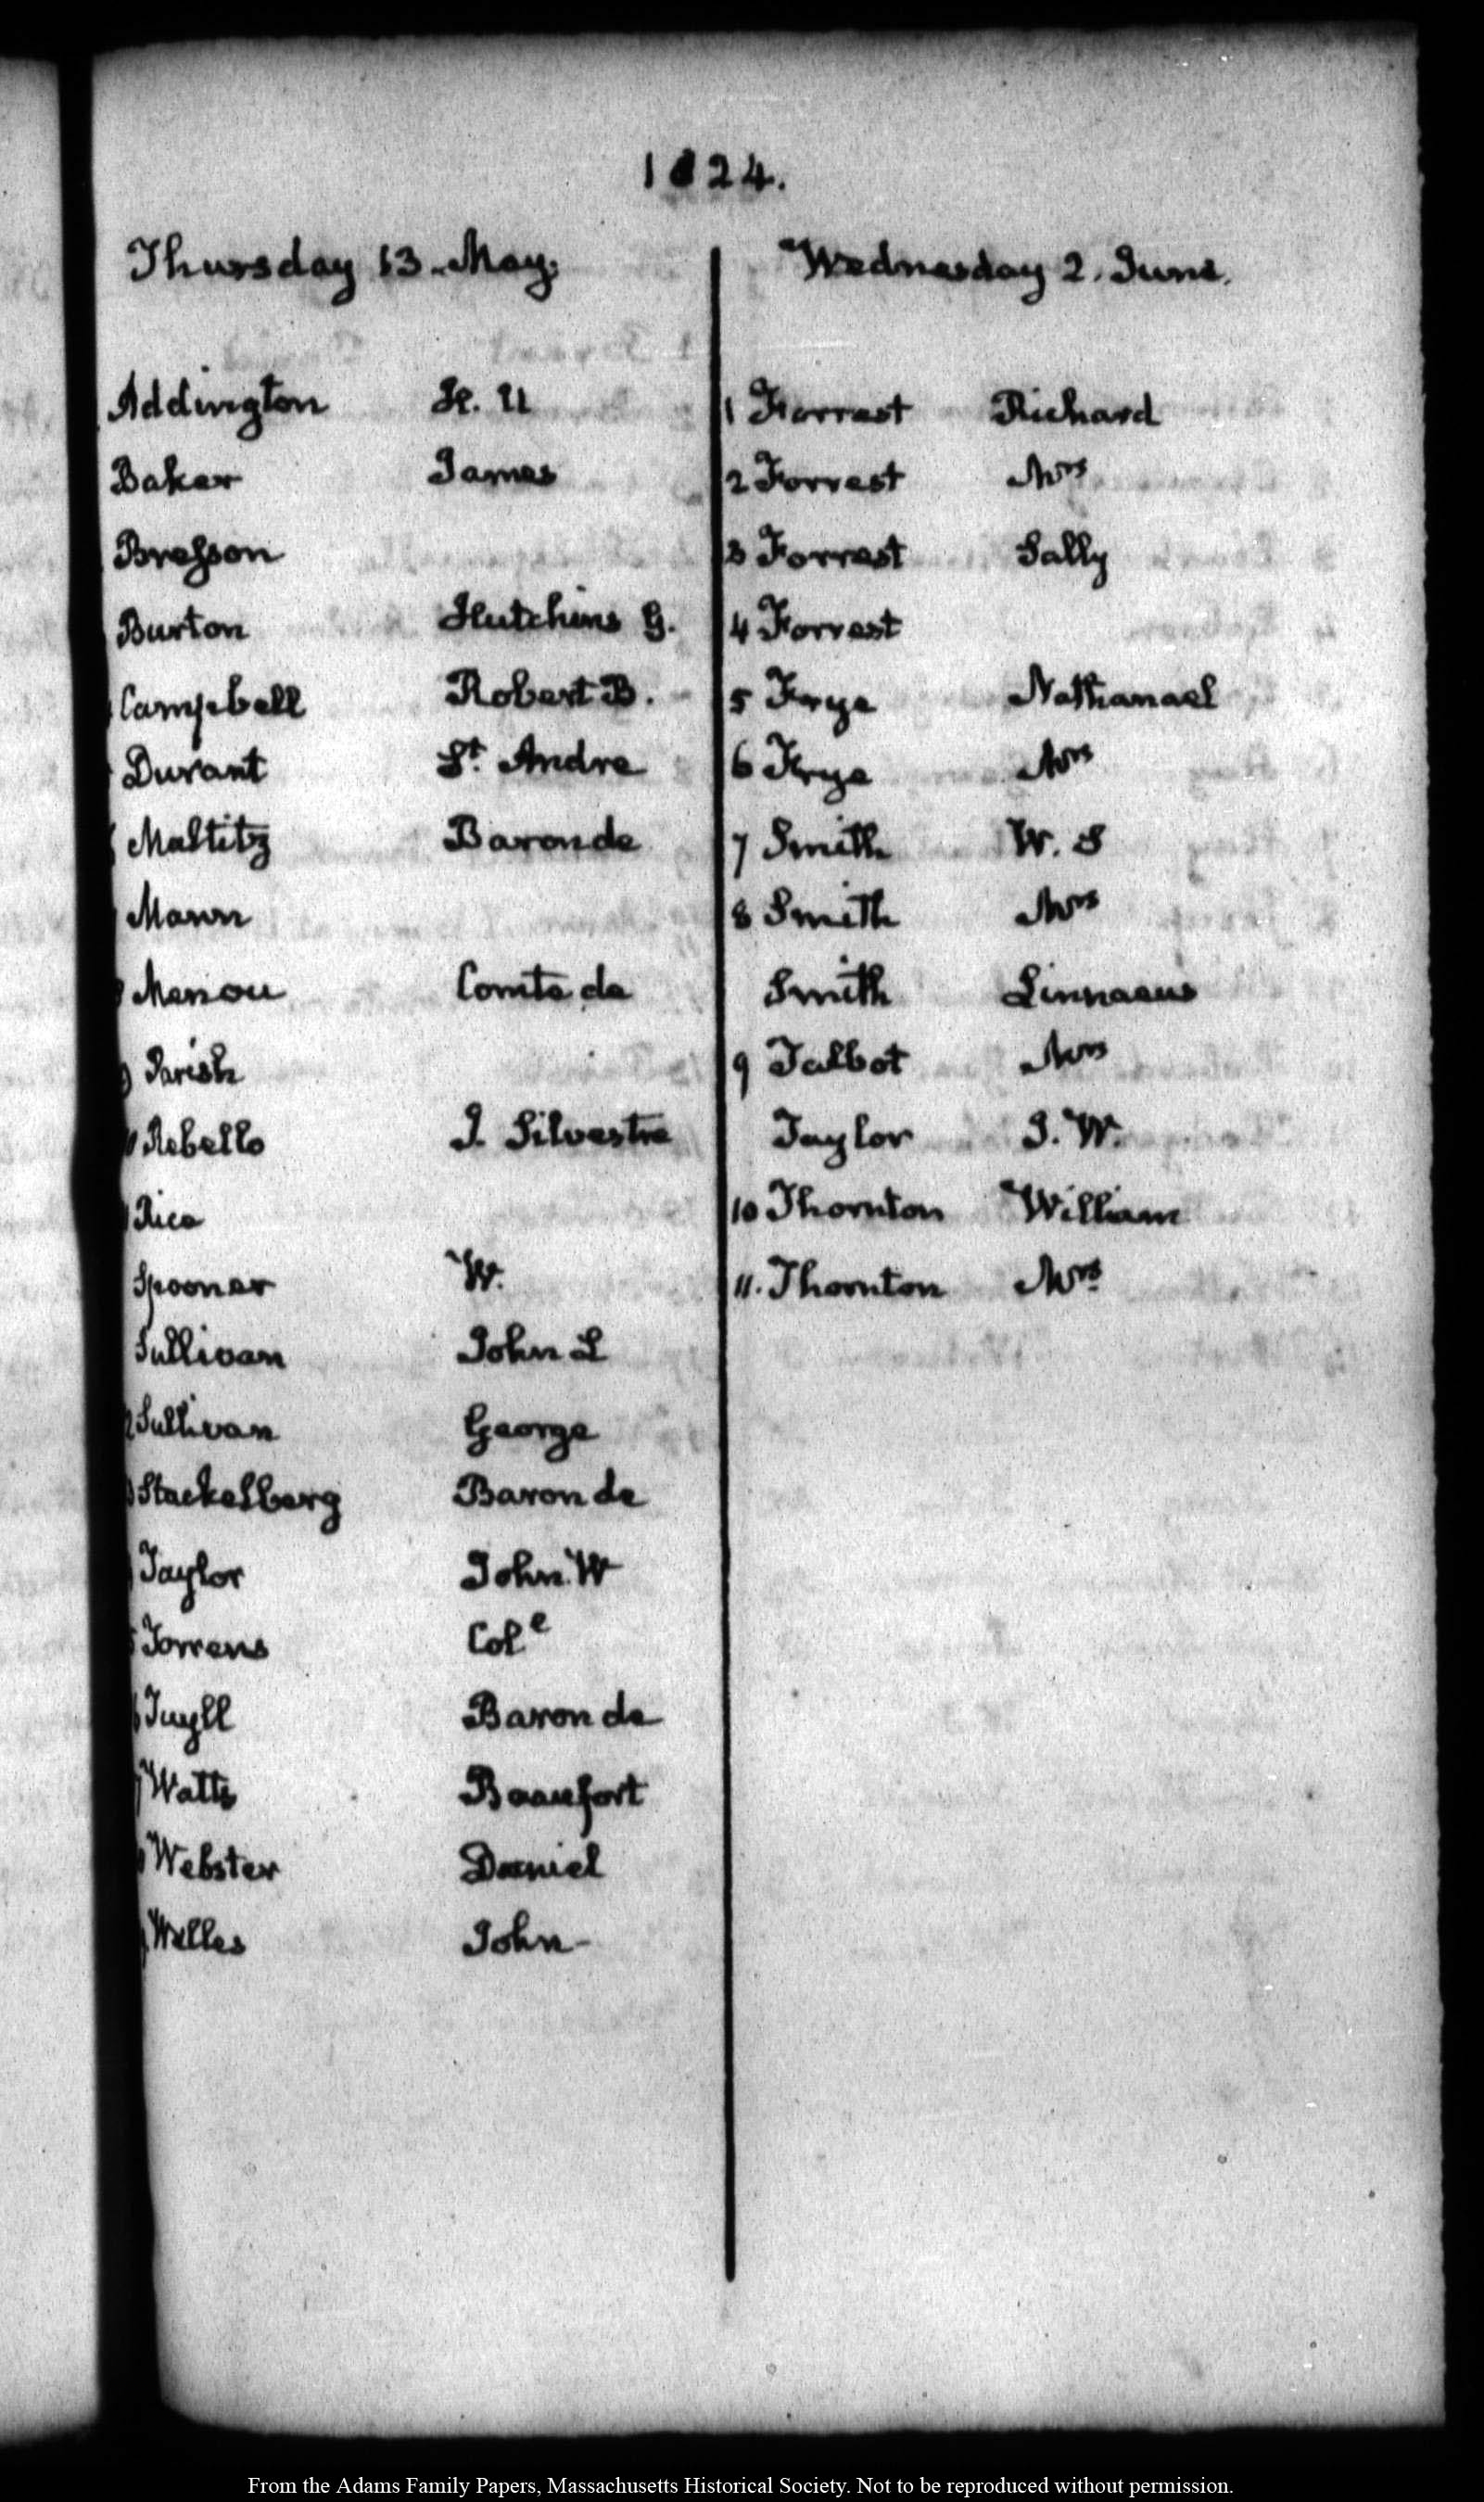 1824.
Thursday 13. May.
Addington H. U
Baker James
Bresson
Burton Hutchins G.
Campbell Robert B.
Durant St. Andre
Maltitz Baron de
Mann
Menou Comte de
Parish
Rebello J. Silvestre
Rice
Spooner W.
Sullivan John L
Sullivan George
Stackelberg Baron de
Taylor John W
Torrens Cole
Tuyll Baron de
Watts Beaufort
Webster Daniel
Welles John-
Wednesday 2. June.
1 Forrest Richard
2 Forrest Mrs
3 Forrest Sally
4 Forrest
5 Frye Nathanael
6 Frye Mrs
7 Smith W. S
8 Smith Mrs
Smith Linnaeus
9 Talbot Mrs
Taylor J. W.
10 Thornton William
11. Thornton Mrs
From the Adams Family Papers, Massachusetts Historical Society. Not to be reproduced without permission.